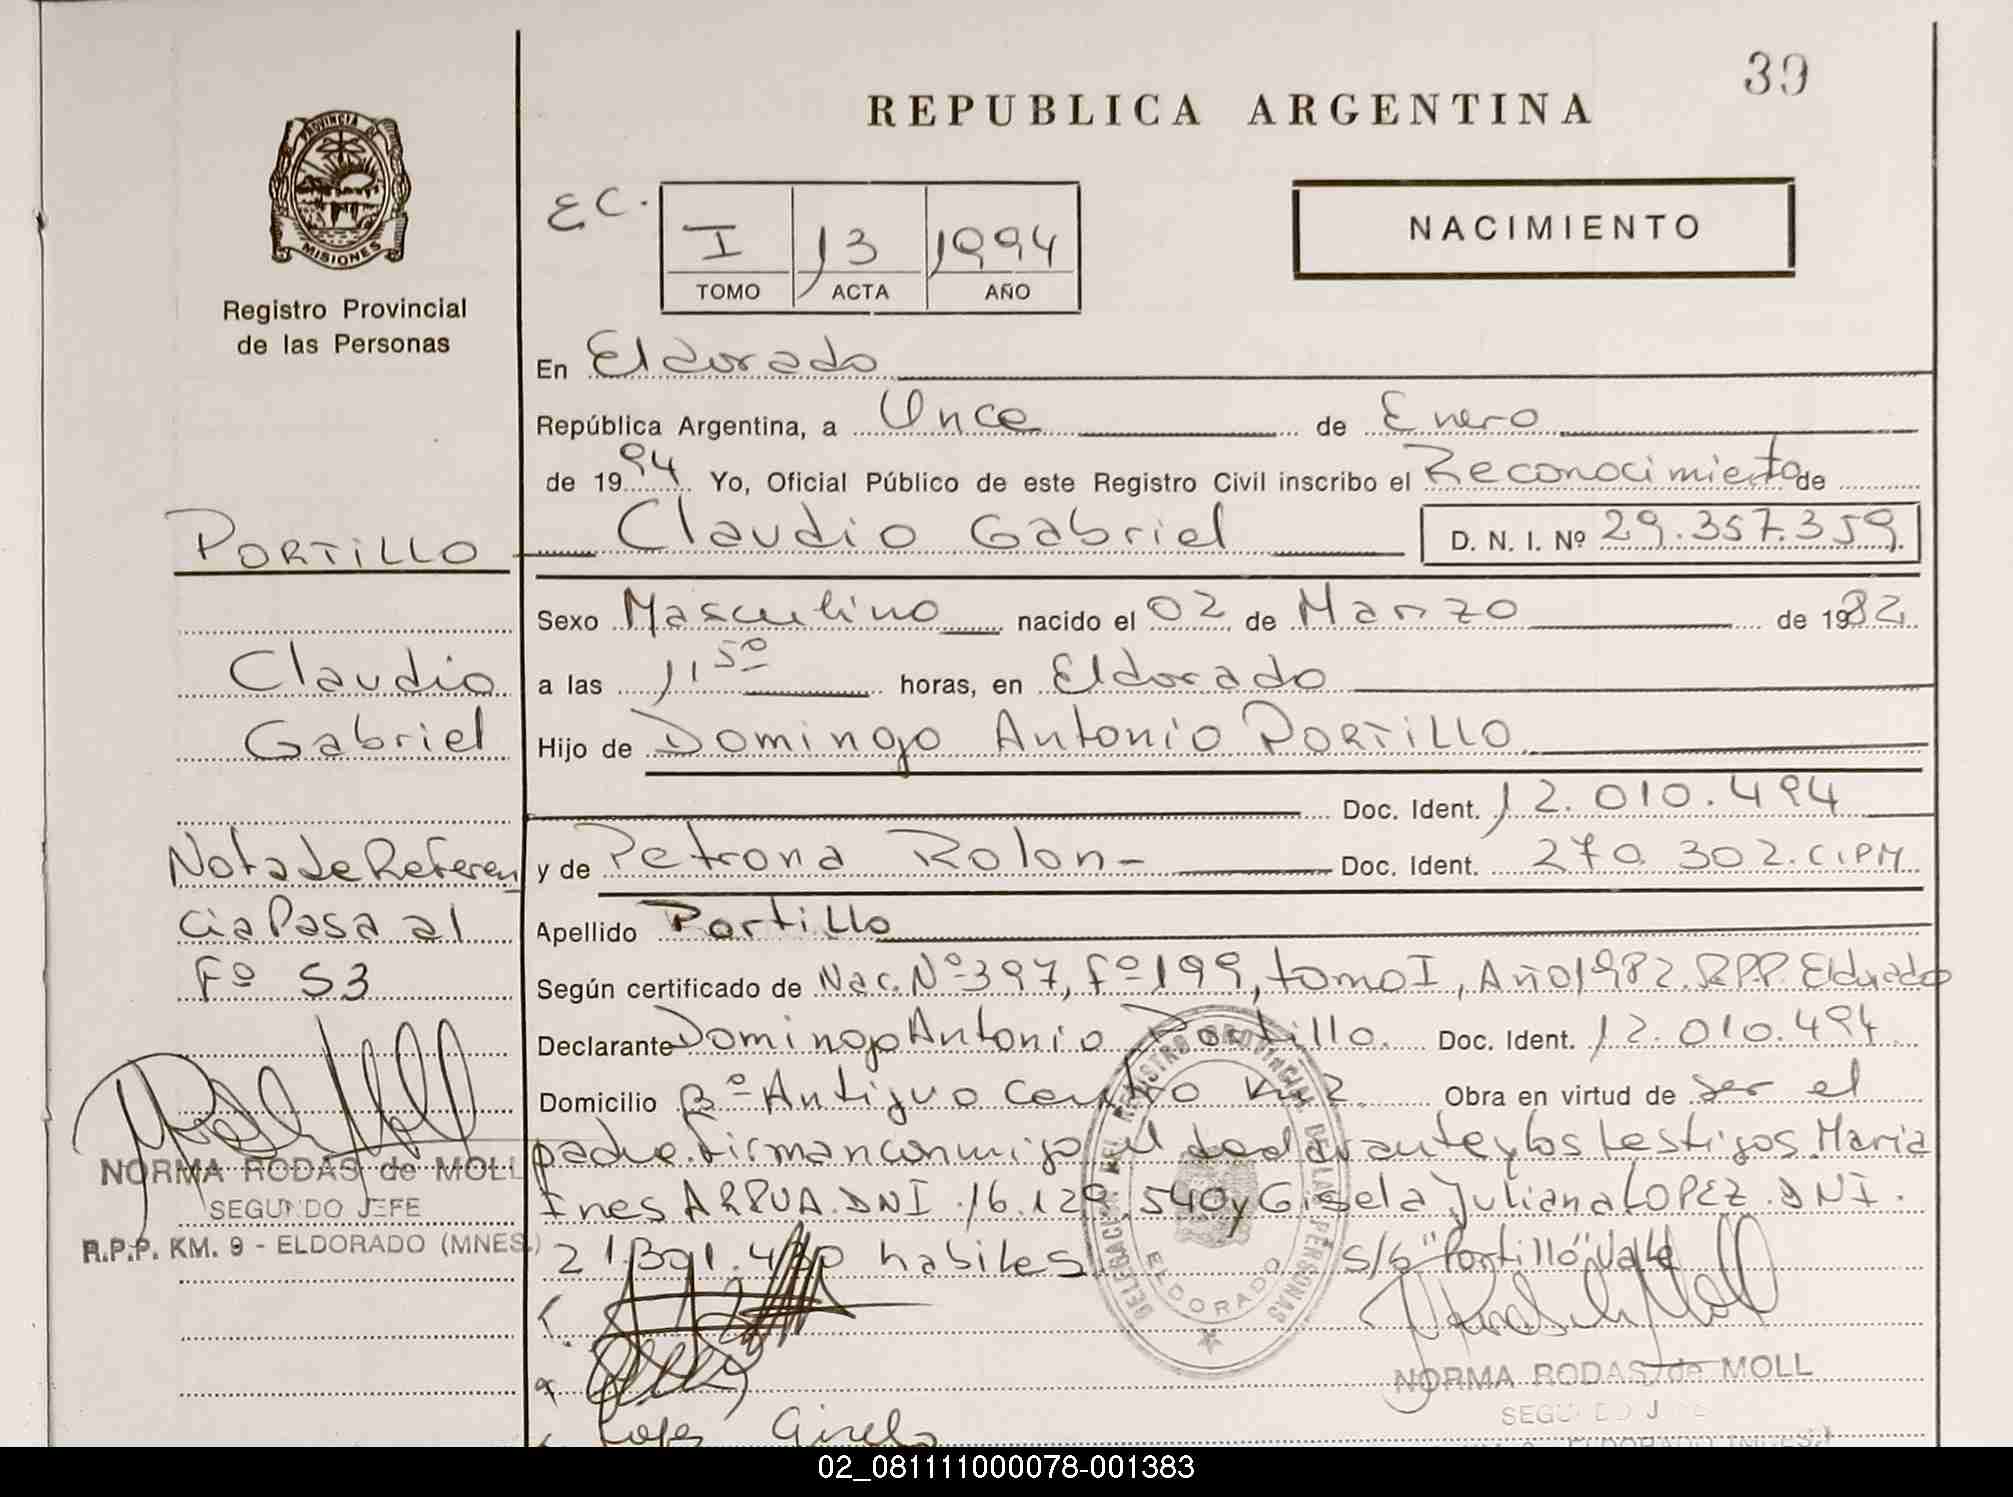 39
REPUBLICA ARGENTINA
PROVINCIA DE
MISIONES
Registro Provincial
de las Personas
EC.
I 13 1994
TOMO ACTA AÑO
NACIMIENTO
En Eldorado
República Argentina, a Once de Enero
de 1994 Yo, Oficial Público de este Registro Civil inscribo el Reconocimiento de
PORTILLO
Claudio Gabriel D. N. I. Nº 29.357.359
Sexo Masculino nacido el 02 de Marzo de 1982
Claudio
a las 11 50 horas, en Eldorado
Gabriel
Hijo de Domingo Antonio PORTILLO
Doc. Ident. 12.010.494
y de Petrona Rolon- Doc. Ident. 270.302.CIPM
Nota de Referen
cia Pasa al
Fº 53
Apellido Portillo
Según certificado de Nac. Nº 397, Fº 199, tomo I, Año 1982. R.P.P. Eldorado
Declarante Domingo Antonio Portillo. Doc. Ident. 12.010.494
Domicilio Bº Antiguo Centro Km 2. Obra en virtud de ser el
padre. Firman conmigo el declarante y los testigos. Maria
Ines ARRUA. DNI. 16.129.540 y Gisela Juliana LOPEZ. DNI.
habiles s/b "Portillo" Vale
NORMA RODAS de MOLL
SEGUNDO JEFE
R.P.P. KM. 9 - ELDORADO (MNES.)
DELEGACION DEL REGISTRO PROVINCIAL DE LAS PERSONAS
ELDORADO
NORMA RODAS de MOLL
SEGUNDO JEFE
Gisela
02_081111000078-001383